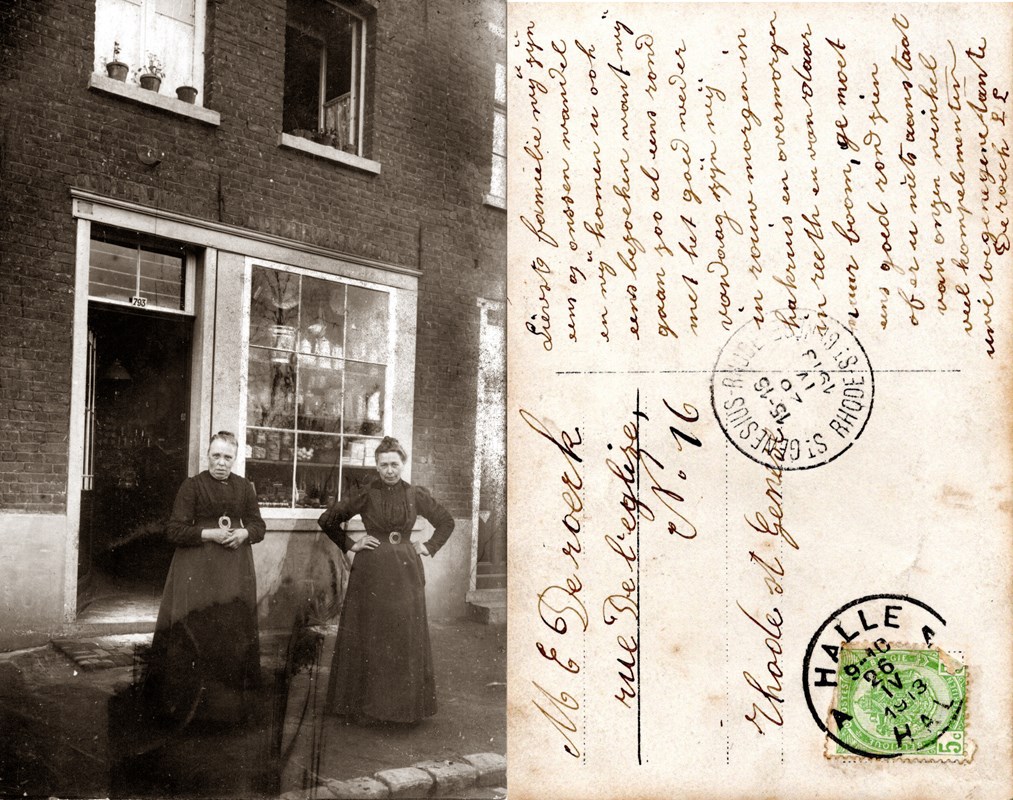 793
Lieve familie wij zijn
eens op onssen wandel
en wij komen u ook
eens bezoeken want wij
gaan zoo al eens rond
met het goed weder
vandaag zijn wij
in rouw morgen in
en overmorgen
in reeth en van daar
naar boom, ge moet
eens goed rond zien
of er u niets aanstaat
van onzen winkel
veel komplementen
uw toegenegene tante
Deroeck
M E Deroeck
rue De l'eglize,
No. 16
Rhode st Genese
ST GENESIUS-RHODE
RHODE-ST-GENESE
15-16
IV
1913
HALLE
9-10
26
IV
1913
HAL
5c